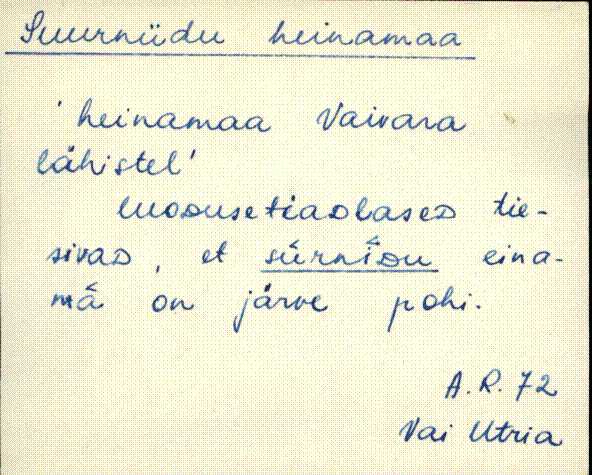 Suurniidu heinamaa
'heinamaa Vaivara
lähistel'
luodusetiadlased tie-
sivad, et sūrnīdu eina-
mā on järve pohi.
A.R. 72
Vai Utria